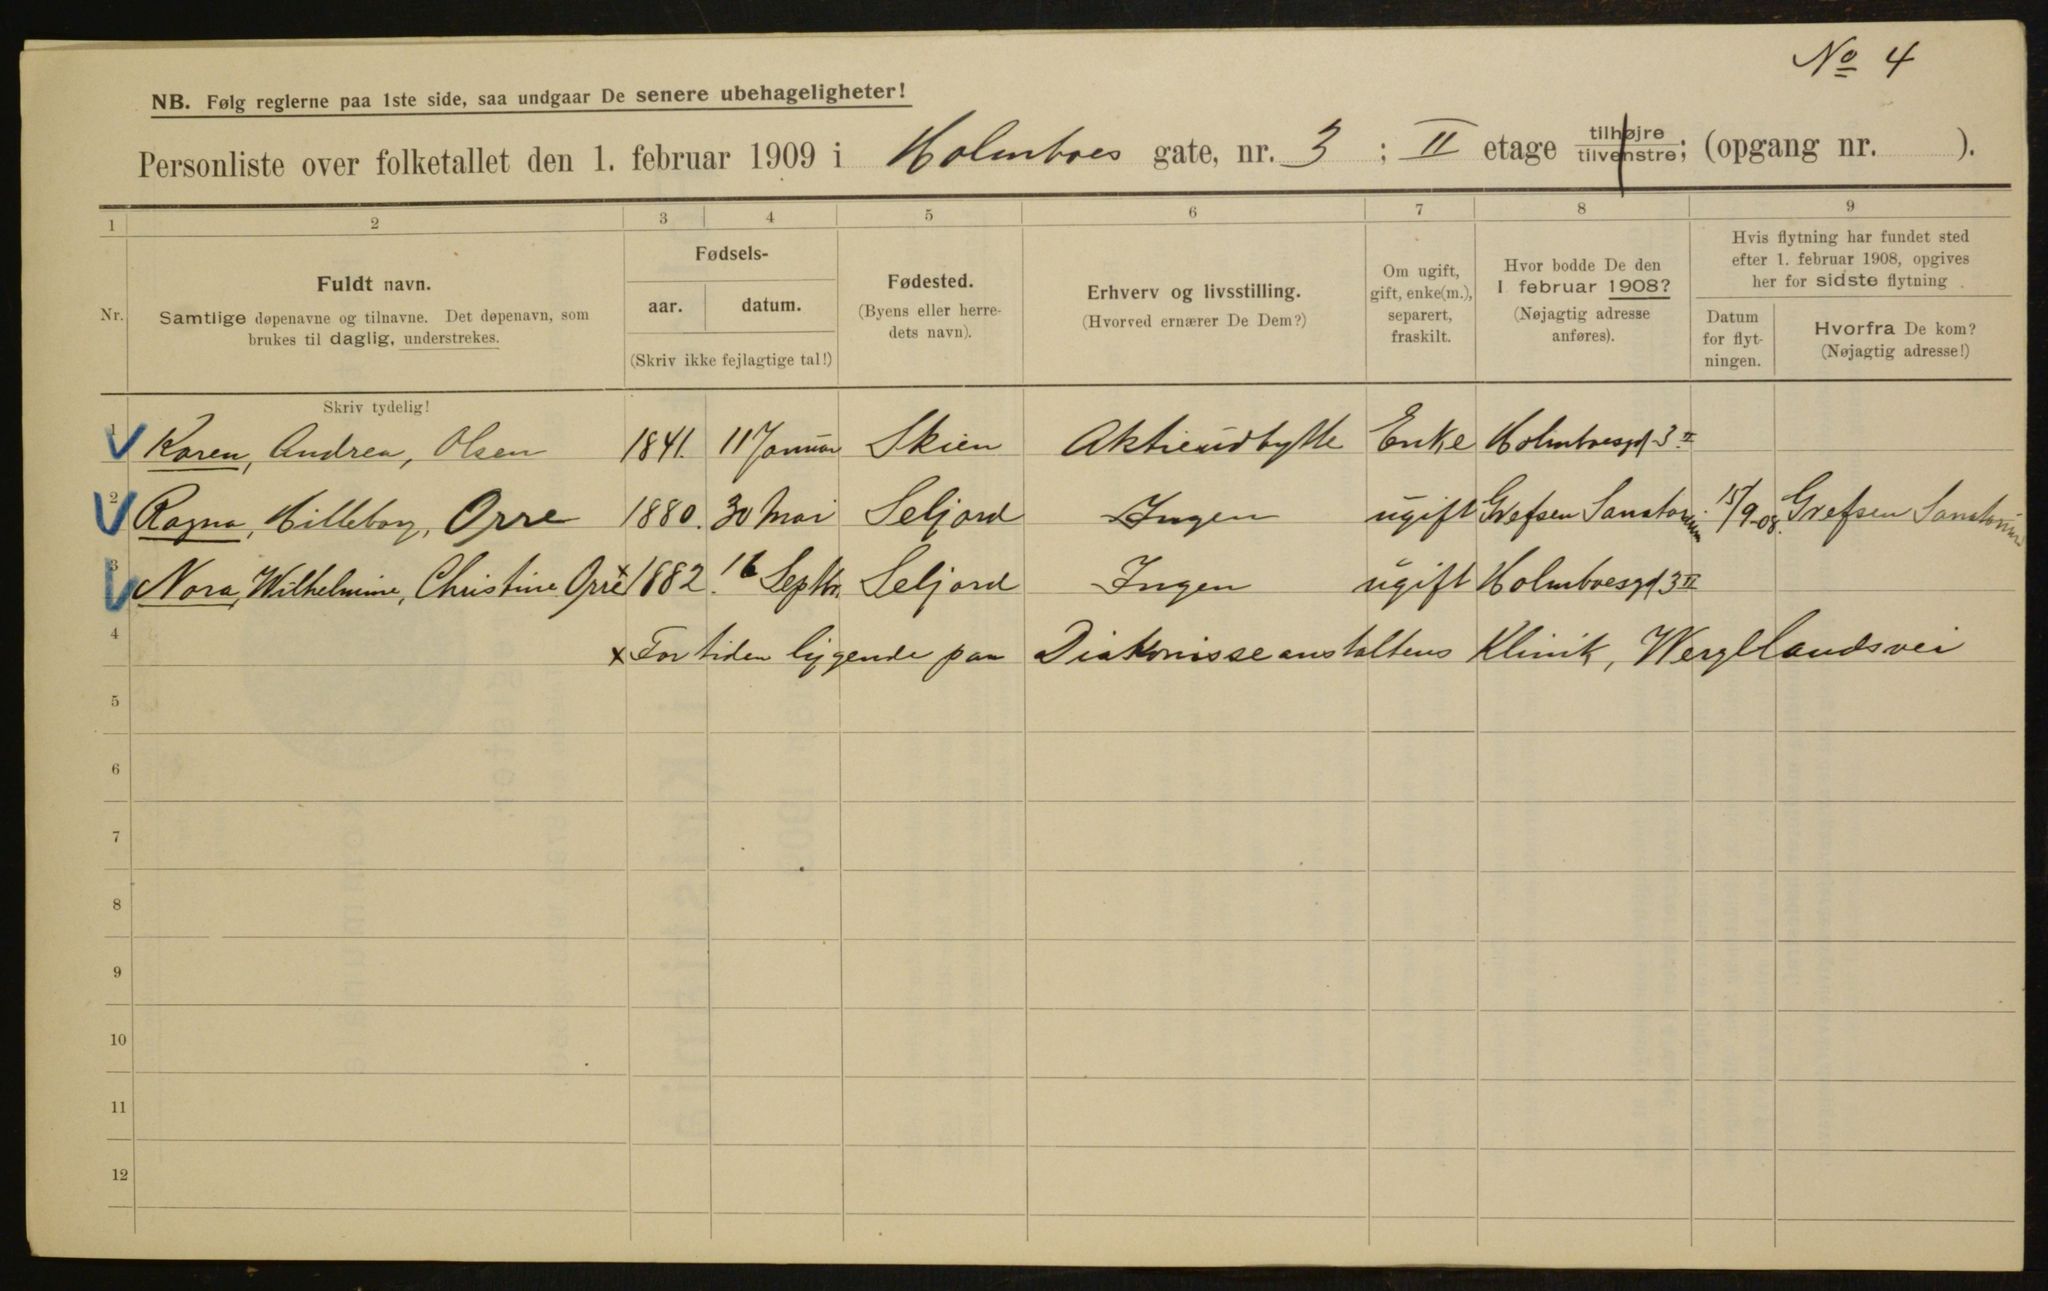 No 4
NB. Følg reglerne paa 1ste side, saa undgaar De senere ubehageligheter!
Personliste over folketallet den 1. februar 1909 i Holmboes gate, nr. 3 ; II etage tilhøjre tilvenstre; (opgang nr. ).
1 2 3 4 5 6 7 8 9
Nr.
Fuldt navn.
Samtlige døpenavne og tilnavne. Det døpenavn, som
brukes til daglig, understrekes.
Skriv tydelig!
Fødsels-
aar. datum.
(Skriv ikke fejlagtige tal!)
Fødested.
(Byens eller herre-
dets navn).
Erhverv og livsstilling.
(Hvorved ernærer De Dem?)
Om ugift,
gift, enke(m.),
separert,
fraskilt.
Hvor bodde De den
1 februar 1908?
(Nøjagtig adresse
anføres).
Hvis flytning har fundet sted
efter 1. februar 1908, opgives
her for sidste flytning
Datum
for flyt-
ningen.
Hvorfra De kom?
(Nøjagtig adresse!)
1 Karen, Andrea, Olsen 1841. 11 Januar Skien Aktieudbytte Enke Holmboesgd 3 II
2 Ragna, Hilleborg, Orre 1880. 30 Mai Seljord Ingen ugift Grefsen Sanatorium 15/9-08. Grefsen Sanatorium
3 Nora, Wilhelmine, Christine Orre x 1882 16 Septbr. Seljord Ingen ugift Holmboesgd 3 II
4 x For tiden liggende paa Diakonisseanstaltens Klinik, Wergllandsvei
5
6
7
8
9
10
11
12